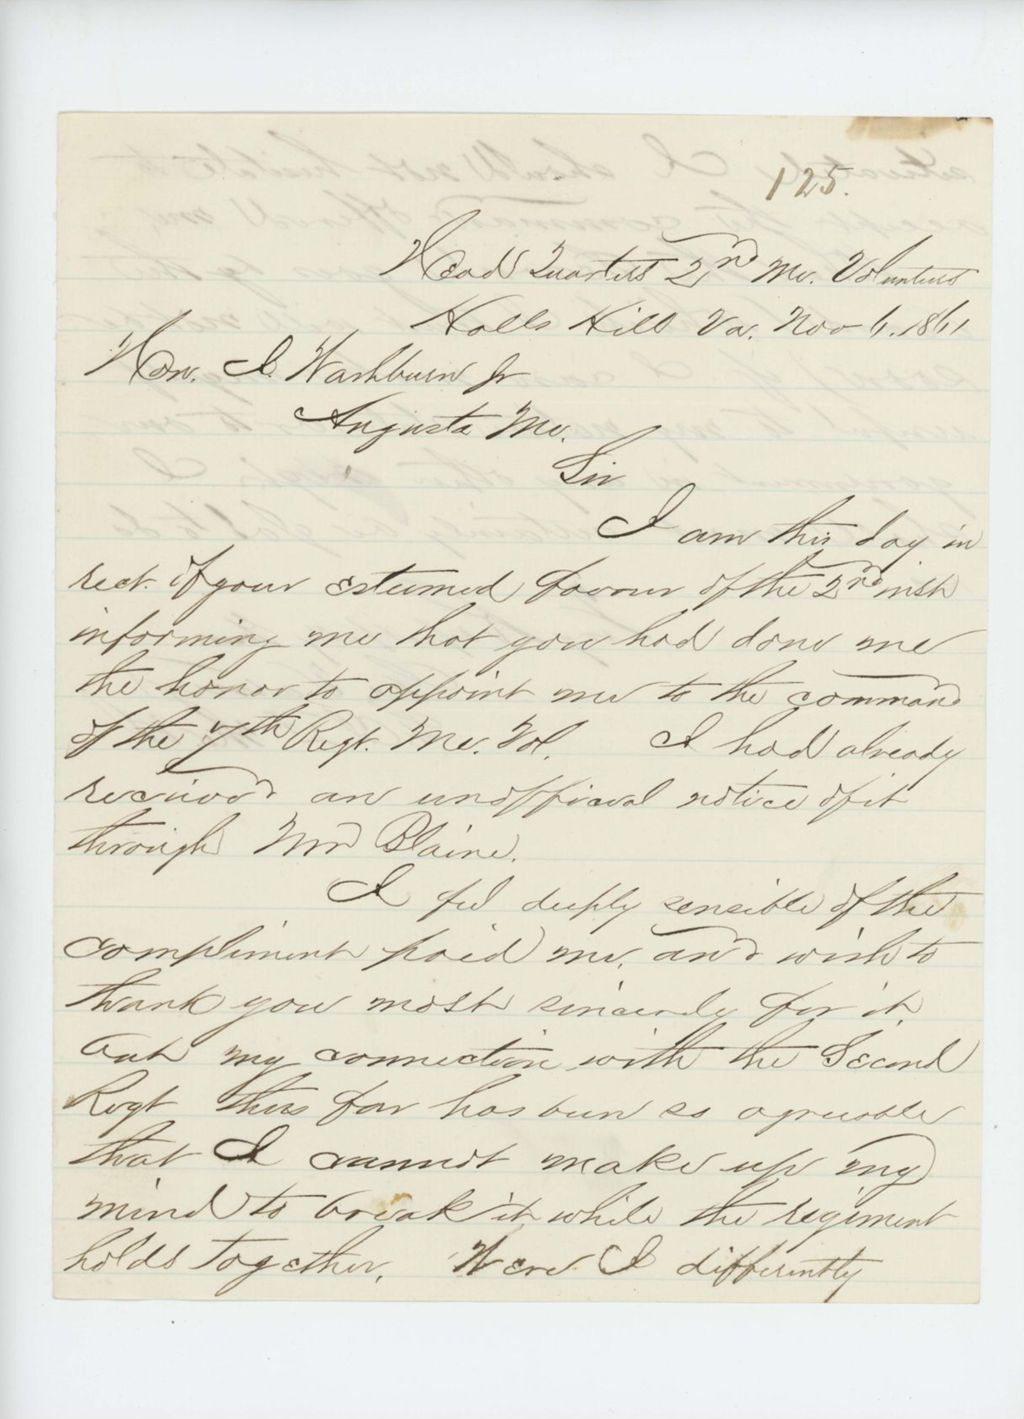 125.
Head Quarters 2nd Me. Volunteers
Halls Hill Va. Nov 6. 1861
Hon. I. Washburn Jr
Augusta Me.
Sir
I am this day in
rect. of your esteemed favour of the 2nd inst
informing me that you had done me
the honor to appoint me to the command
of the 7th Regt. Me. Vol. I had already
received an unofficial notice of it
through Mr Blaine.
I feel deeply sensible of the
compliment paid me, and wish to
thank you most sincerely for it,
but my connection with the Second
Regt thus far has been so agreeable
that I cannot make up my
mind to break it while the regiment
holds together. Were I differently